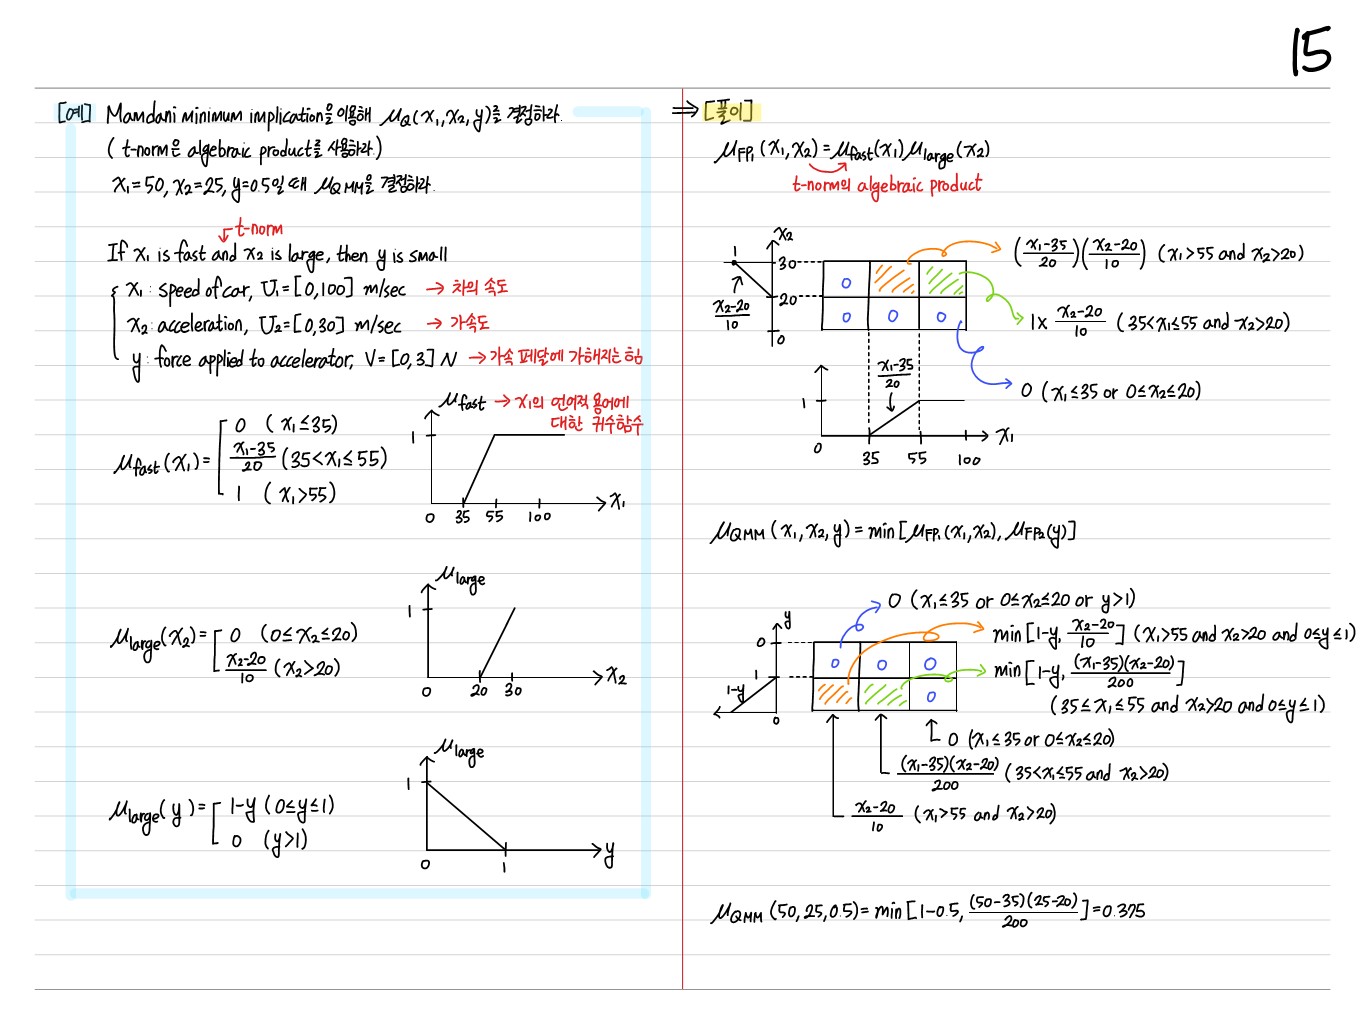 15
[예] Mamdani minimum implication을 이용해 μQ(x1, x2, y)를 결정하라.
( t-norm은 algebraic product를 사용하라.)
x1=50, x2=25, y=0.5일 때 μQMM을 결정하라.
t-norm
If x1 is fast and x2 is large, then y is small
x1 : speed of car, U1=[0,100] m/sec → 차의 속도
x2 : acceleration, U2=[0,30] m/sec → 가속도
y : force applied to accelerator, V=[0,3] N → 가속 페달에 가해지는 힘
μfast → x1의 언어적 용어에
대한 귀수함수
μfast(x1)=
0 (x1≤35)
(x1-35)/20 (35<x1≤55)
1 (x1>55)
1
0 35 55 100 x1
μlarge
1
μlarge(x2)=
0 (0≤x2≤20)
(x2-20)/10 (x2>20)
0 20 30 x2
μlarge
1
μlarge(y)=
1-y (0≤y≤1)
0 (y>1)
0 1 y
⇒ [풀이]
μFP1(x1, x2)=μfast(x1)μlarge(x2)
t-norm의 algebraic product
1 x2
30
(x2-20)/10
20
0
0
0 0 0
((x1-35)/20)((x2-20)/10) (x1>55 and x2>20)
1× (x2-20)/10 (35<x1≤55 and x2>20)
0 (x1≤35 or 0≤x2≤20)
(x1-35)/20
1
0 35 55 100 x1
μQMM(x1, x2, y)=min[μFP1(x1, x2), μFP2(y)]
0 (x1≤35 or 0≤x2≤20 or y>1)
min[1-y, (x2-20)/10] (x1>55 and x2>20 and 0≤y≤1)
min[1-y, (x1-35)(x2-20)/200]
(35≤x1≤55 and x2>20 and 0≤y≤1)
y
0
1
1-y
0
0 0 0
0
0 (x1≤35 or 0≤x2≤20)
(x1-35)(x2-20)/200 (35<x1≤55 and x2>20)
(x2-20)/10 (x1>55 and x2>20)
μQMM(50, 25, 0.5)=min[1-0.5, (50-35)(25-20)/200]=0.375